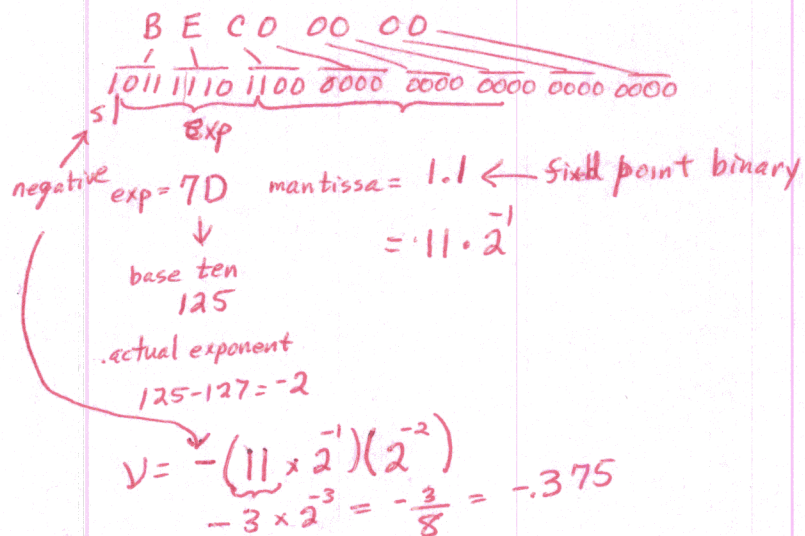 B E C 0 00 00
1011 1110 1100 0000 0000 0000 0000 0000
s exp
negative exp = 7D mantissa = 1.1 ← fixed point binary
= 11 · 2⁻¹
base ten
125
actual exponent
125-127 = -2
V = -(11 × 2⁻¹)(2⁻²)
-3 × 2⁻³ = -3/8 = -.375